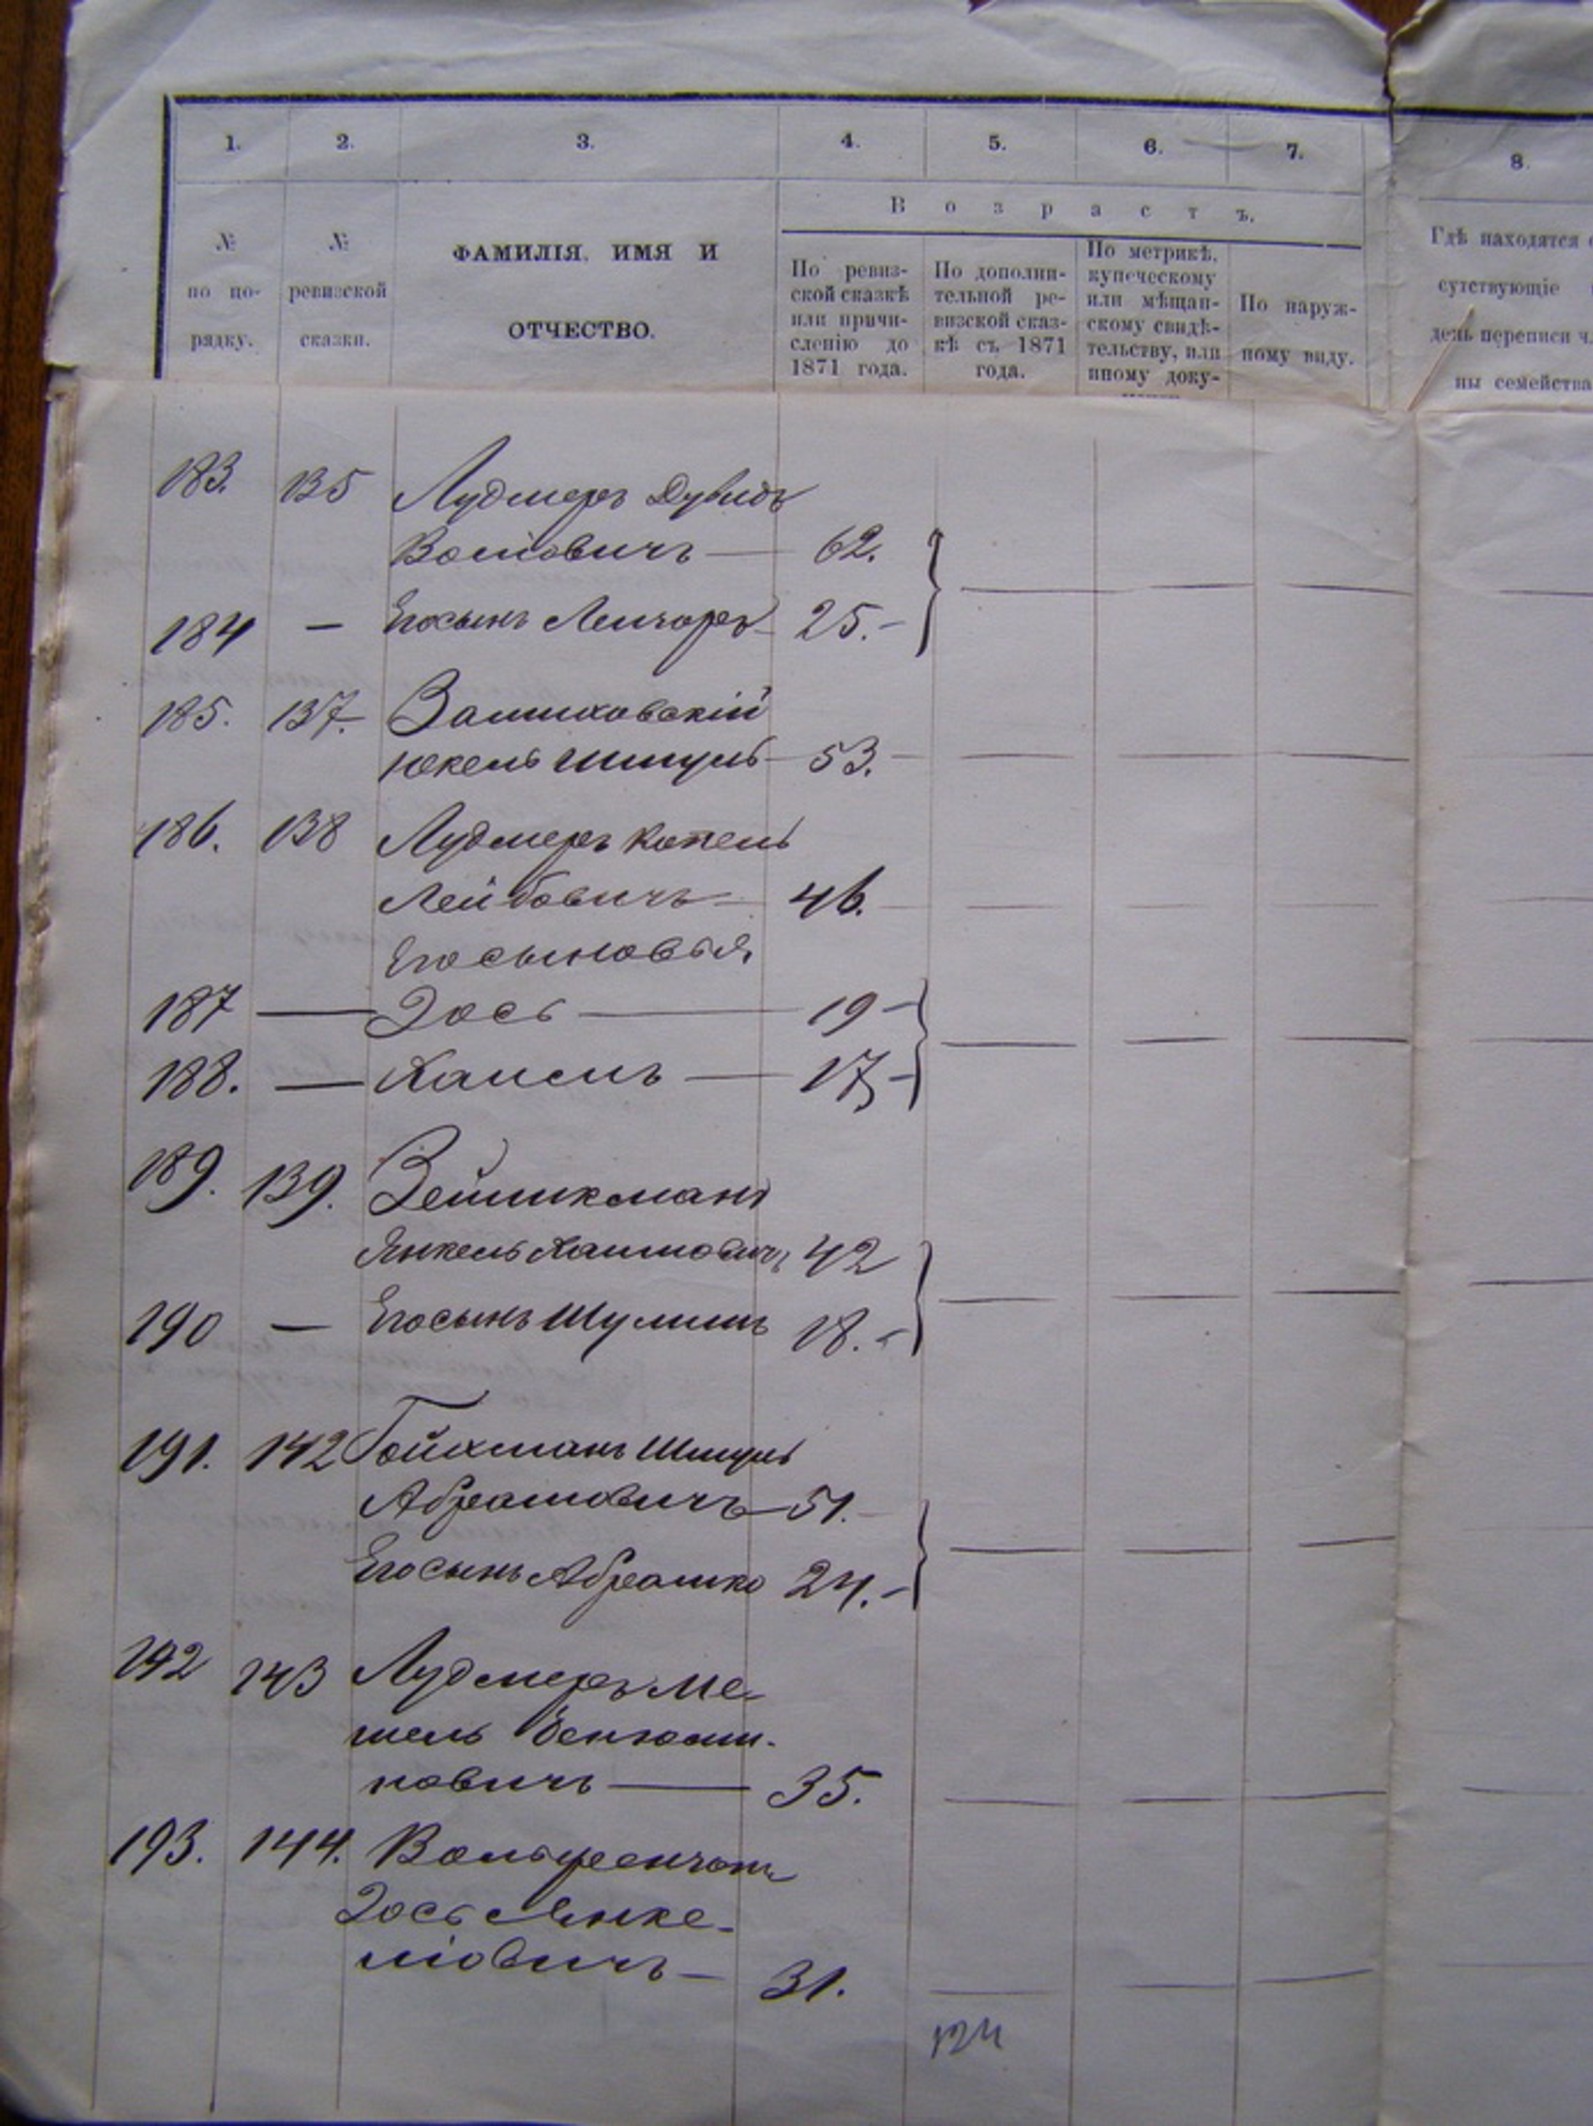 1. 2. 3. 4. 5. 6. 7. 8.
В о з р а с т ъ.
№ по по- рядку.
№ ревизской сказки.
ФАМИЛІЯ, ИМЯ И
ОТЧЕСТВО.
По ревиз-
ской сказкѣ
или причи-
сленію до
1871 года.
По дополни-
тельной ре-
визской сказ-
кѣ съ 1871
года.
По метрикѣ,
купеческому
или мѣщан-
скому свидѣ-
тельству, или
иному доку-
По наруж-
ному виду.
Гдѣ находятся
сутствующіе
день переписи
ны семейства
183. 135 Лудмеръ Дувидъ
Волковичъ 62.
184 — Егосынъ 25.
185. 137. Залиховскій
Юкель Шмуль 53.
186. 138 Лудмеръ Копель
Лейбовичъ 46.
Егосыновья
187 — Іось — 19
188. — Хаимъ — 17
189. 139. Вейшикманъ
Янкель Хаимовичъ 42
190 — Егосынъ Шулимъ 18.
191. 142 Гойхманъ Шмуль
Абрамовичъ 51.
Егосынъ Абрамко 24.
192 143 Лудмеръ Ме-
шель Бенюми-
новичъ — 35.
193. 144.
Іось Янке-
ліовичъ — 31.
124